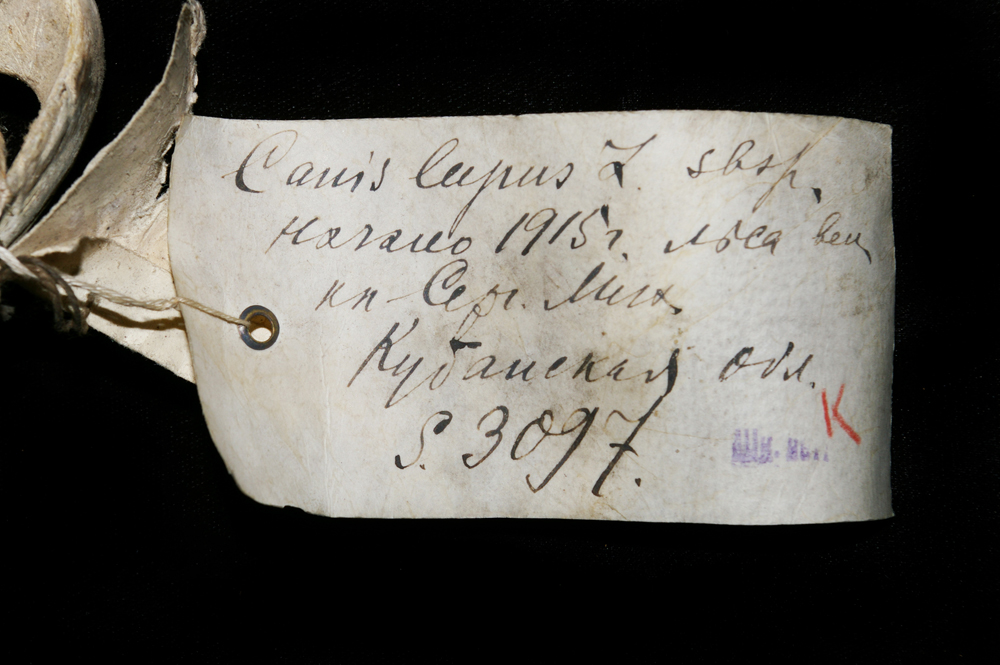 Canis lupus L. sbsp.
Начало 1915 г. лѣса вел.
кн. Серг. Мих.
Кубанская обл.
К
S. 3097.